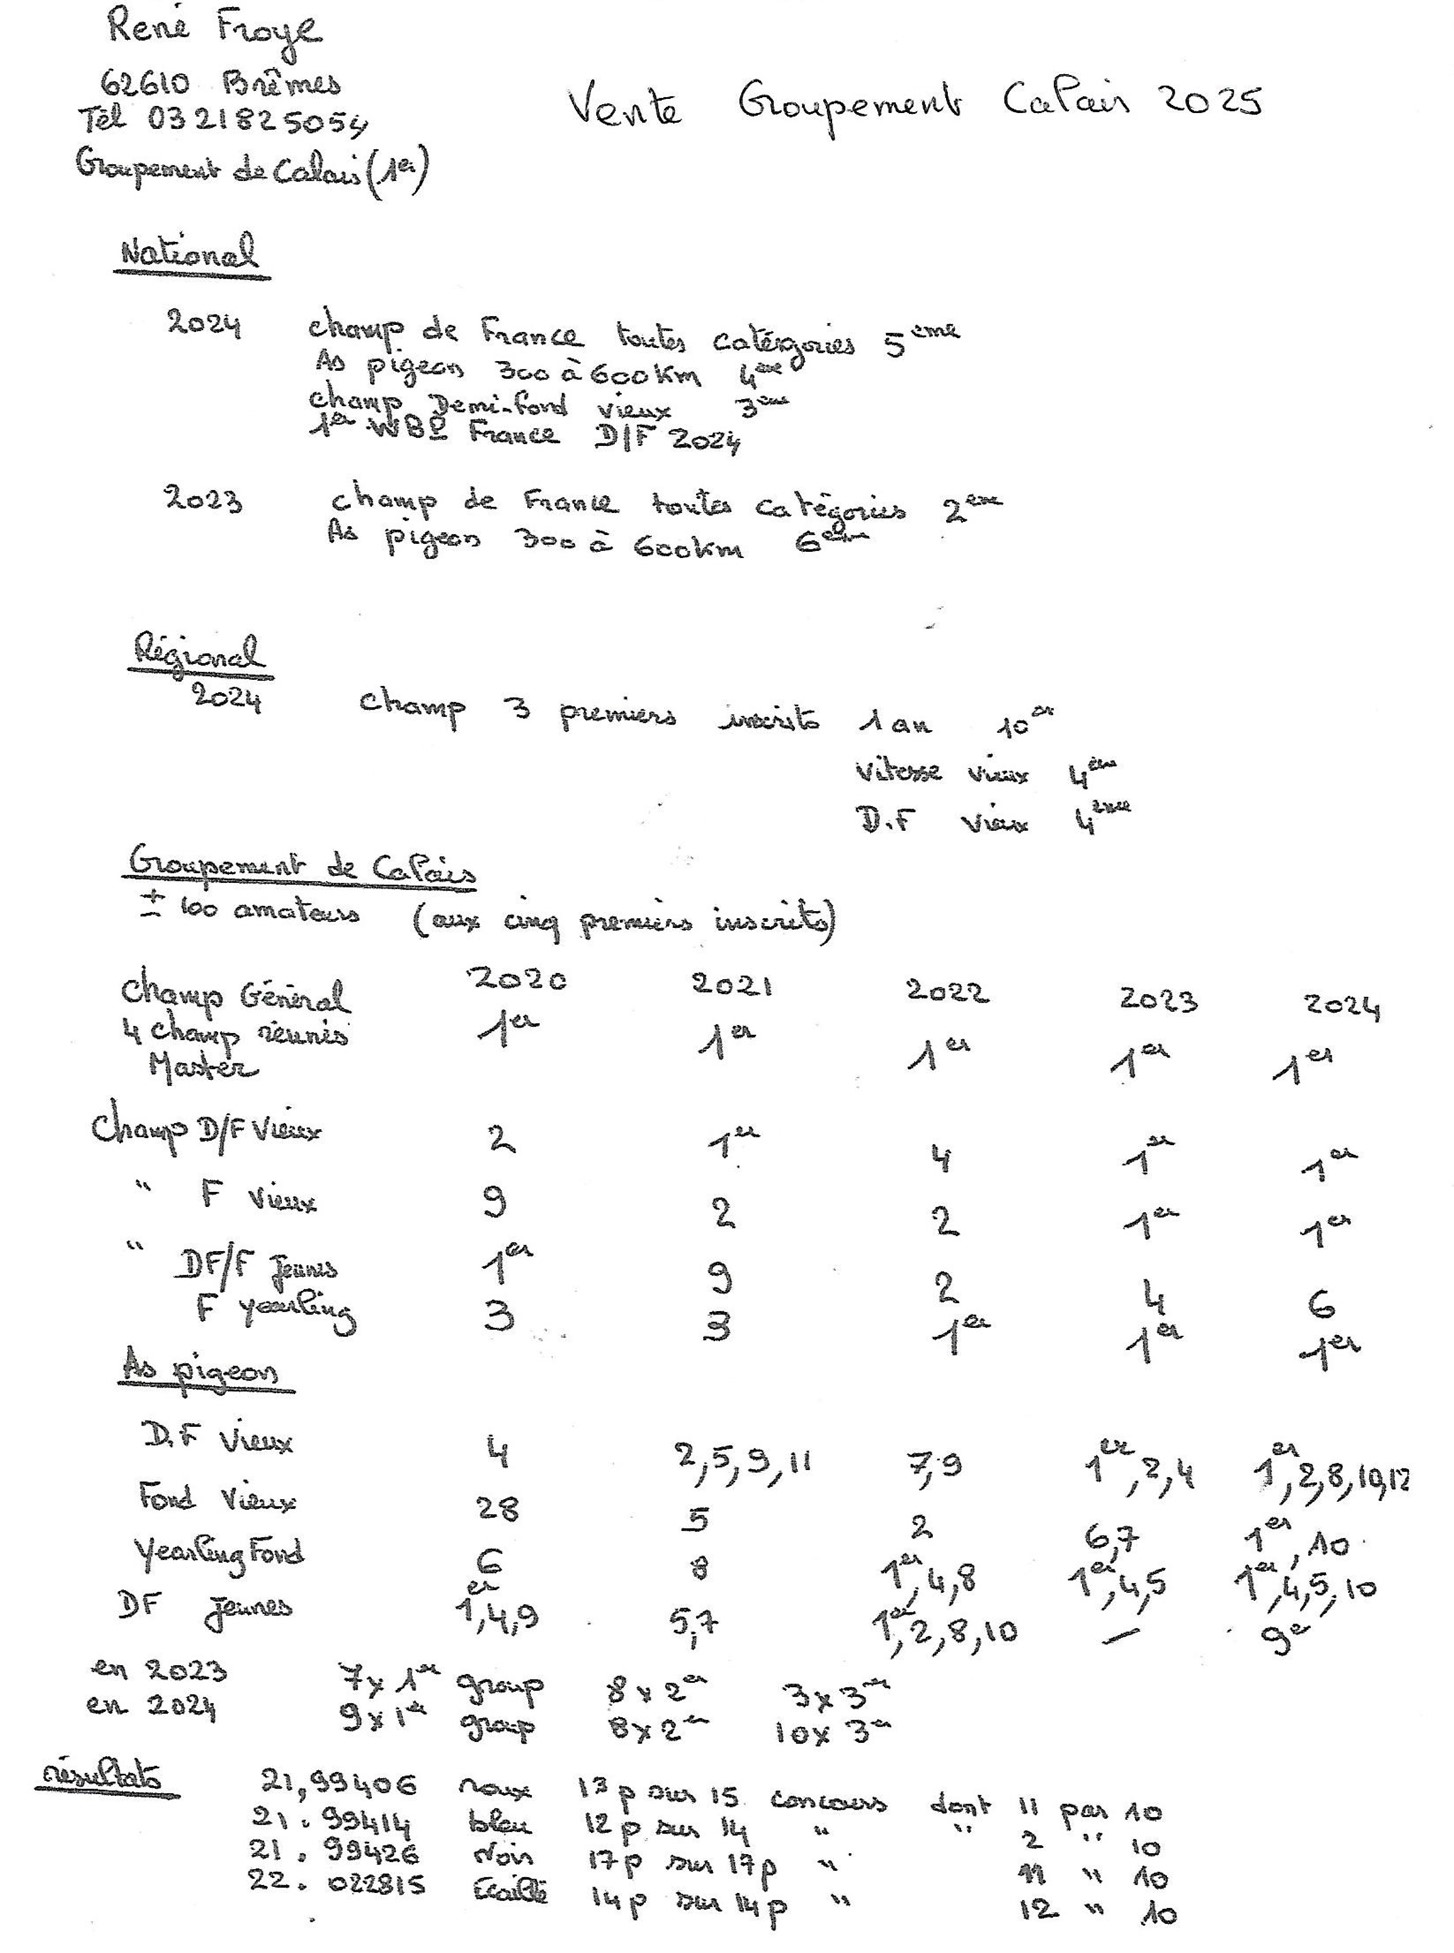 René Froye
62610 Brêmes
Tél 0321825054
Groupement de Calais (1er)
Vente Groupement Calais 2025
National
2024 champ de France toutes catégories 5ème
As pigeon 300 à 600Km 4ème
champ Demi-fond vieux 3ème
1er WBP France D/F 2024
2023 champ de France toutes catégories 2ème
As pigeon 300 à 600Km 6ème
Régional
2024 champ 3 premiers inscrits 1 an 10er
vitesse vieux 4ème
D.F vieux 4ème
Groupement de Calais
± 100 amateurs (aux cinq premiers inscrits)
champ Général 2020 2021 2022 2023 2024
4 champ réunis 1er 1er 1er 1er 1er
Master
champ D/F Vieux 2 1er 4 1er 1er
" F vieux 9 2 2 1er 1er
" DF/F jeunes 1er 9 2 4 6
F yearling 3 3 1er 1er 1er
As pigeon
D.F vieux 4 2,5,9,11 7,9 1er,2,4 1er,2,8,10,12
Fond vieux 28 5 2 6,7 1er,10
Yearling Fond 6 8 1er,4,8 1er,4,5 1er,4,5,10
DF jeunes 1er,4,9 5,7 1er,2,8,10 — 9e
en 2023 7x1er group 8x2er 3x3er
en 2024 9x1er group 8x2er 10x3er
résultats 21,99406 roux 13p sur 15 concours dont 11 par 10
21.99414 bleu 12p sur 14 " " 2 " 10
21.99426 Noir 17p sur 17p " 11 " 10
22.022815 Écaillé 14p sur 14p " 12 " 10